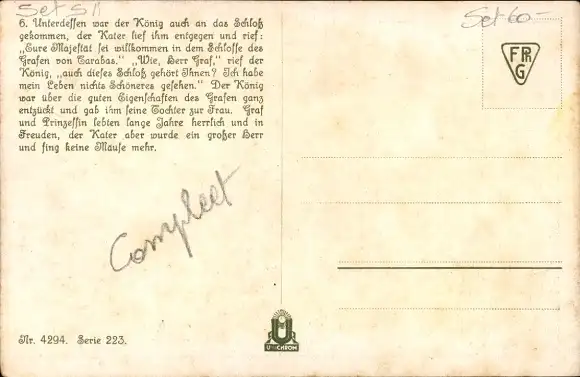 Set S11
Set 60-
6. Unterdessen war der König auch an das Schloß
gekommen, der Kater lief ihm entgegen und rief:
„Eure Majestät sei willkommen in dem Schlosse des
Grafen von Carabas.“ „Wie, Herr Graf,“ rief der
König, „auch dieses Schloß gehört Ihnen? Ich habe
mein Leben nichts Schöneres gesehen.“ Der König
war über die guten Eigenschaften des Grafen ganz
entzückt und gab ihm seine Tochter zur Frau. Graf
und Prinzessin lebten lange Jahre herrlich und in
Freuden, der Kater aber wurde ein großer Herr
und fing keine Mäuse mehr.
FPR
G
Compleet
Nr. 4294. Serie 223.